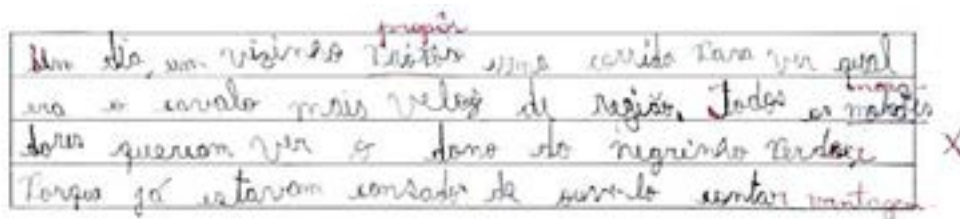 propôs
Um dia, um vizinho Propos uma corrida Para ver qual
era o cavalo mais veloz de região. Todos os
dores queriam ver o dono do negrinho Perder
Porque já estavam cansados de ouvi-lo contar vantagem